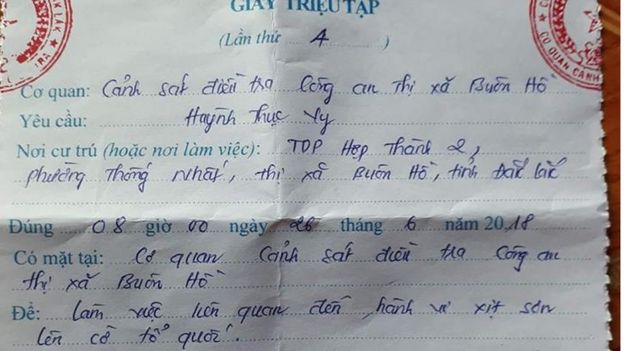 GIẤY TRIỆU TẬP
(Lần thứ 4 )
Cơ quan: Cảnh sát điều tra Công an thị xã Buôn Hồ
Yêu cầu: Huỳnh Thục Vy
Nơi cư trú (hoặc nơi làm việc): TDP Hợp Thành 2,
phường Thống Nhất, thị xã Buôn Hồ, tỉnh Đắk Lắk
Đúng 08 giờ 00 ngày 26 tháng 6 năm 2018
Có mặt tại: Cơ quan Cảnh sát điều tra Công an
thị xã Buôn Hồ
Để: Làm việc liên quan đến hành vi xịt sơn
lên cờ tổ quốc.